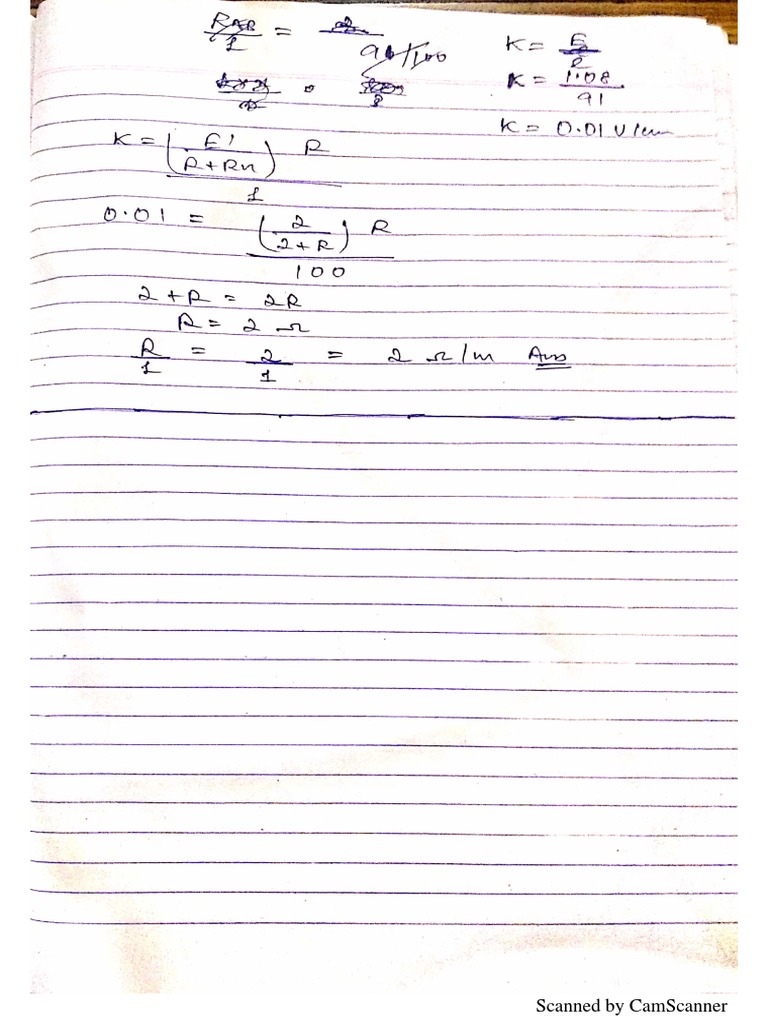 R_AB/1 = 2/(90/100)
K = E/l
K = 1.08/91
K = 0.01 V/cm
K = (E'/(R+Rh)) R / 1
0.01 = (2/(2+R)) R / 100
2 + R = 2R
R = 2 Ω
R/1 = 2/1 = 2 Ω/m Ans
Scanned by CamScanner